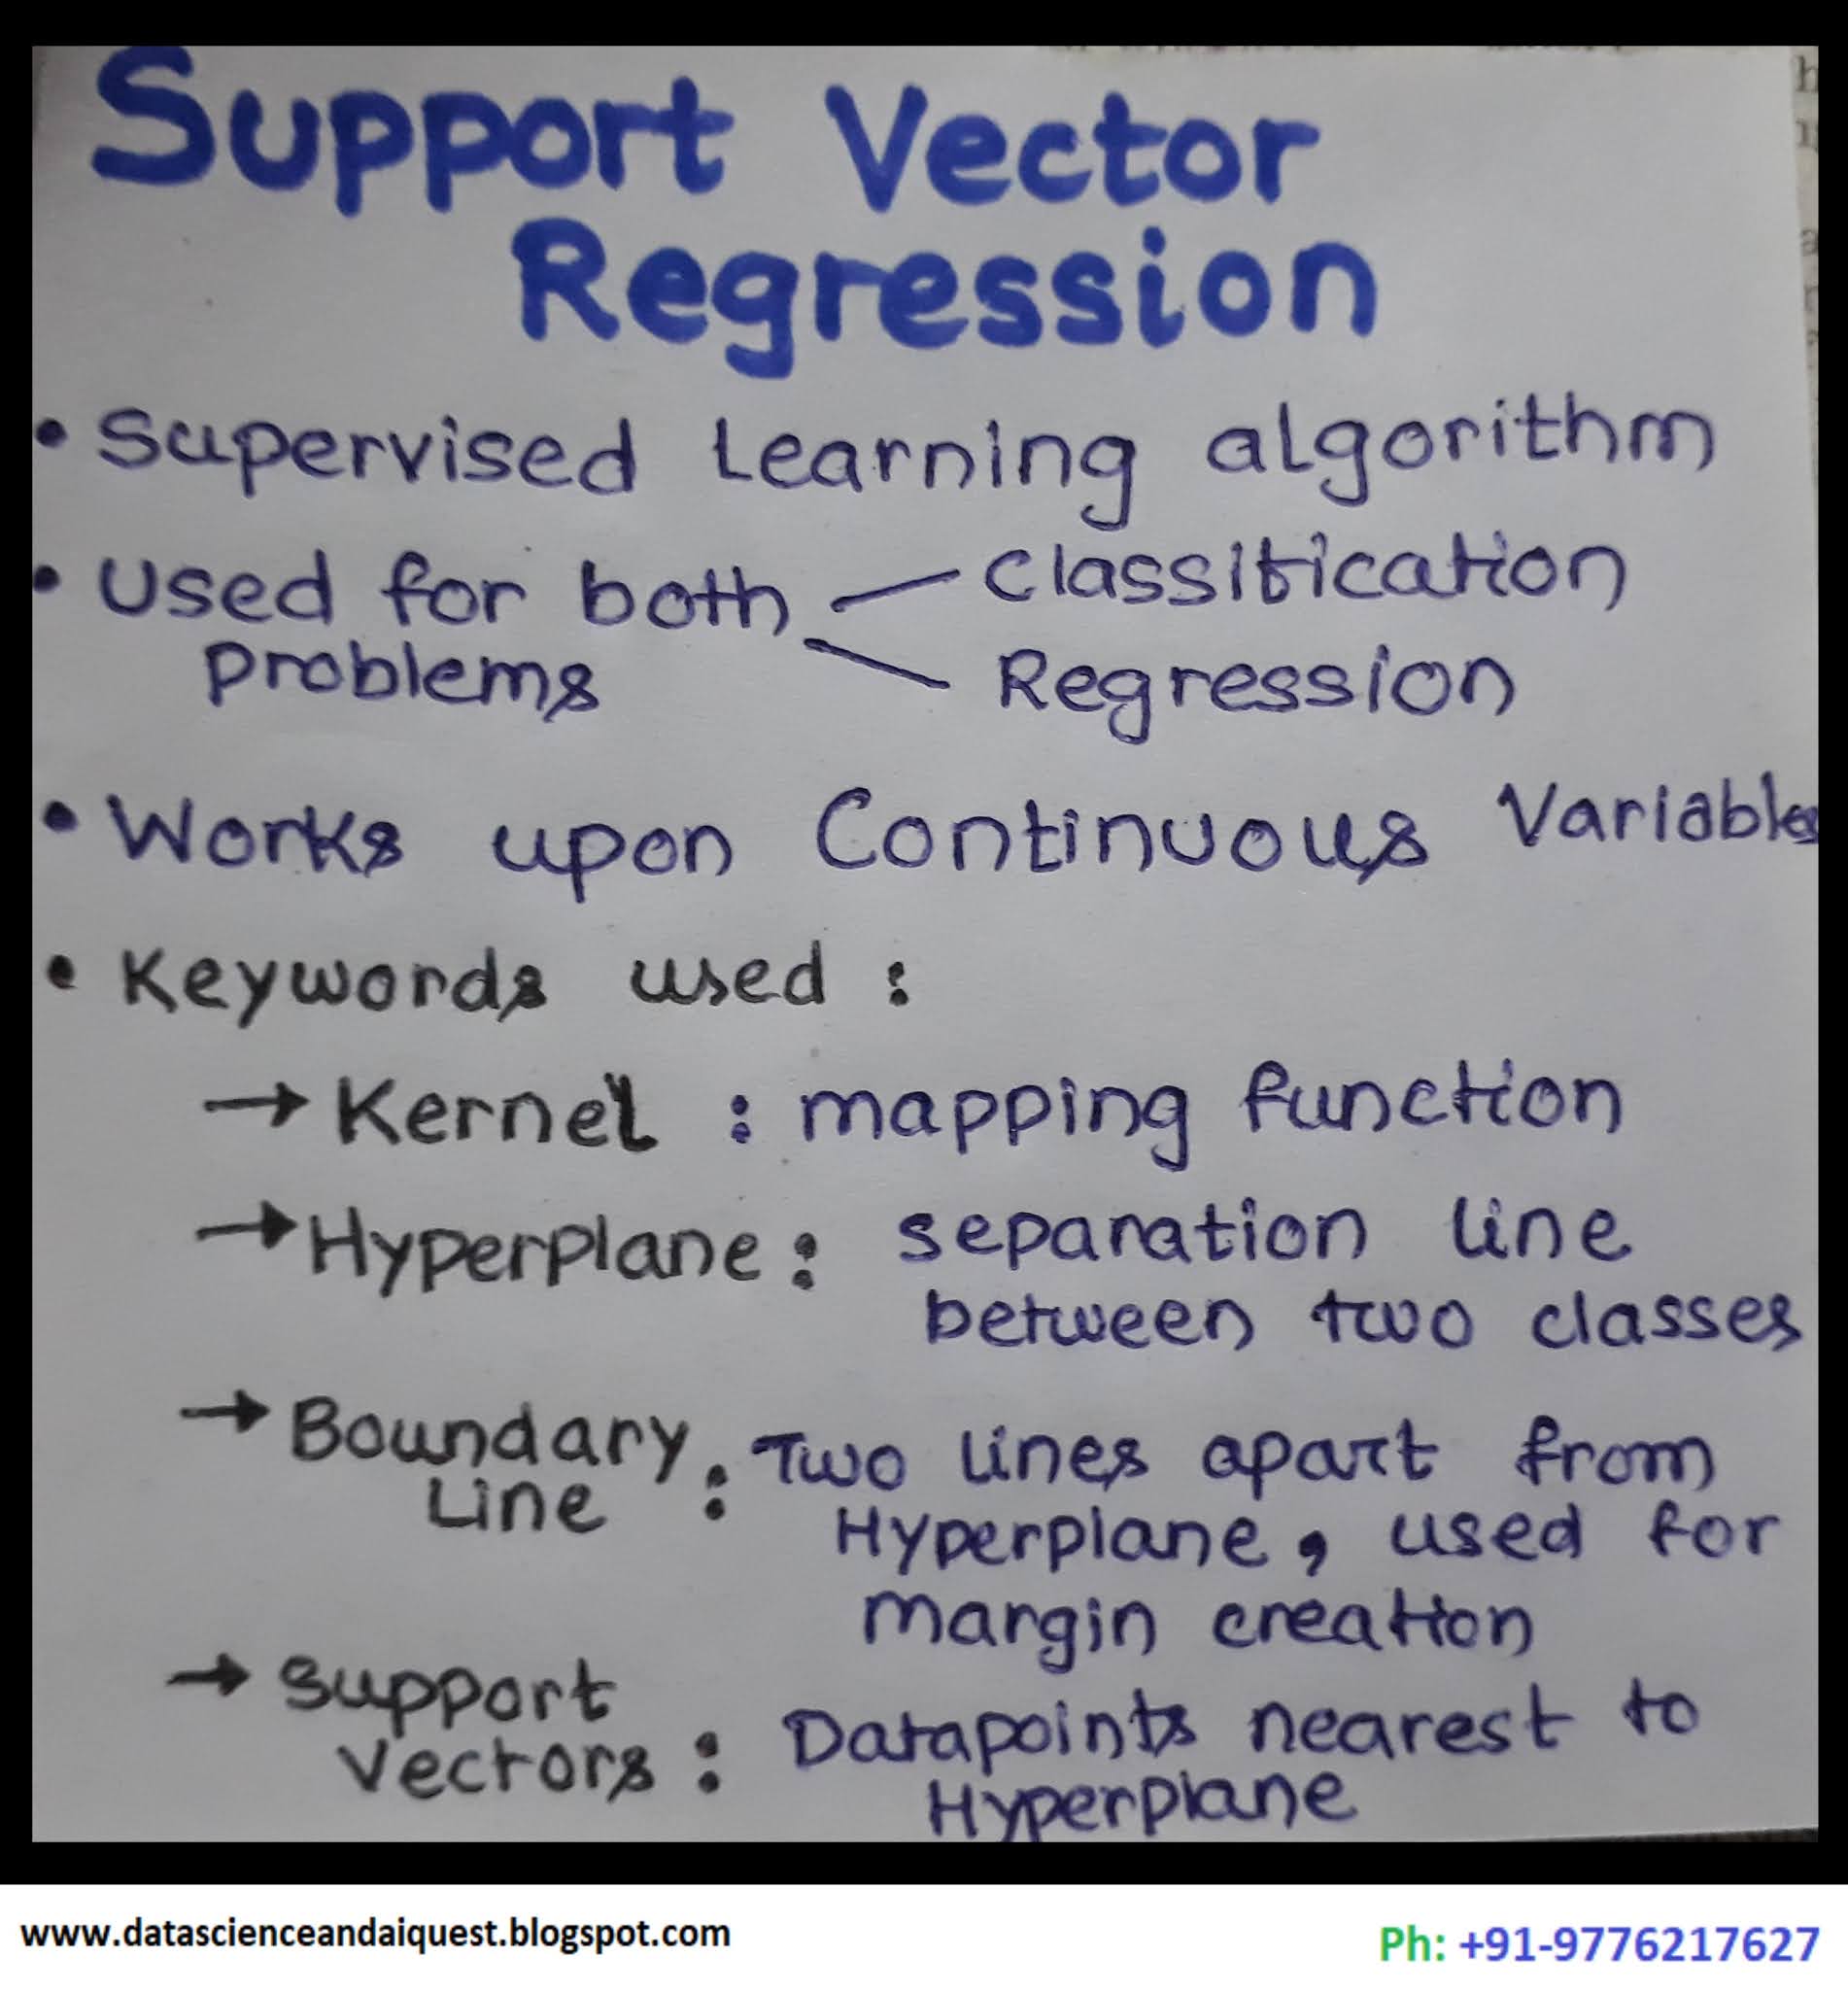 Support Vector
Regression
• Supervised Learning algorithm
• Used for both — Classification
Problems — Regression
• Works upon Continuous Variables
• Keywords used :
→ Kernel : mapping function
→ Hyperplane : separation line
between two classes
→ Boundary
Line : Two lines apart from
Hyperplane, used for
margin creation
→ Support
Vectors : Datapoints nearest to
Hyperplane
www.datascienceandaiquest.blogspot.com
Ph: +91-9776217627